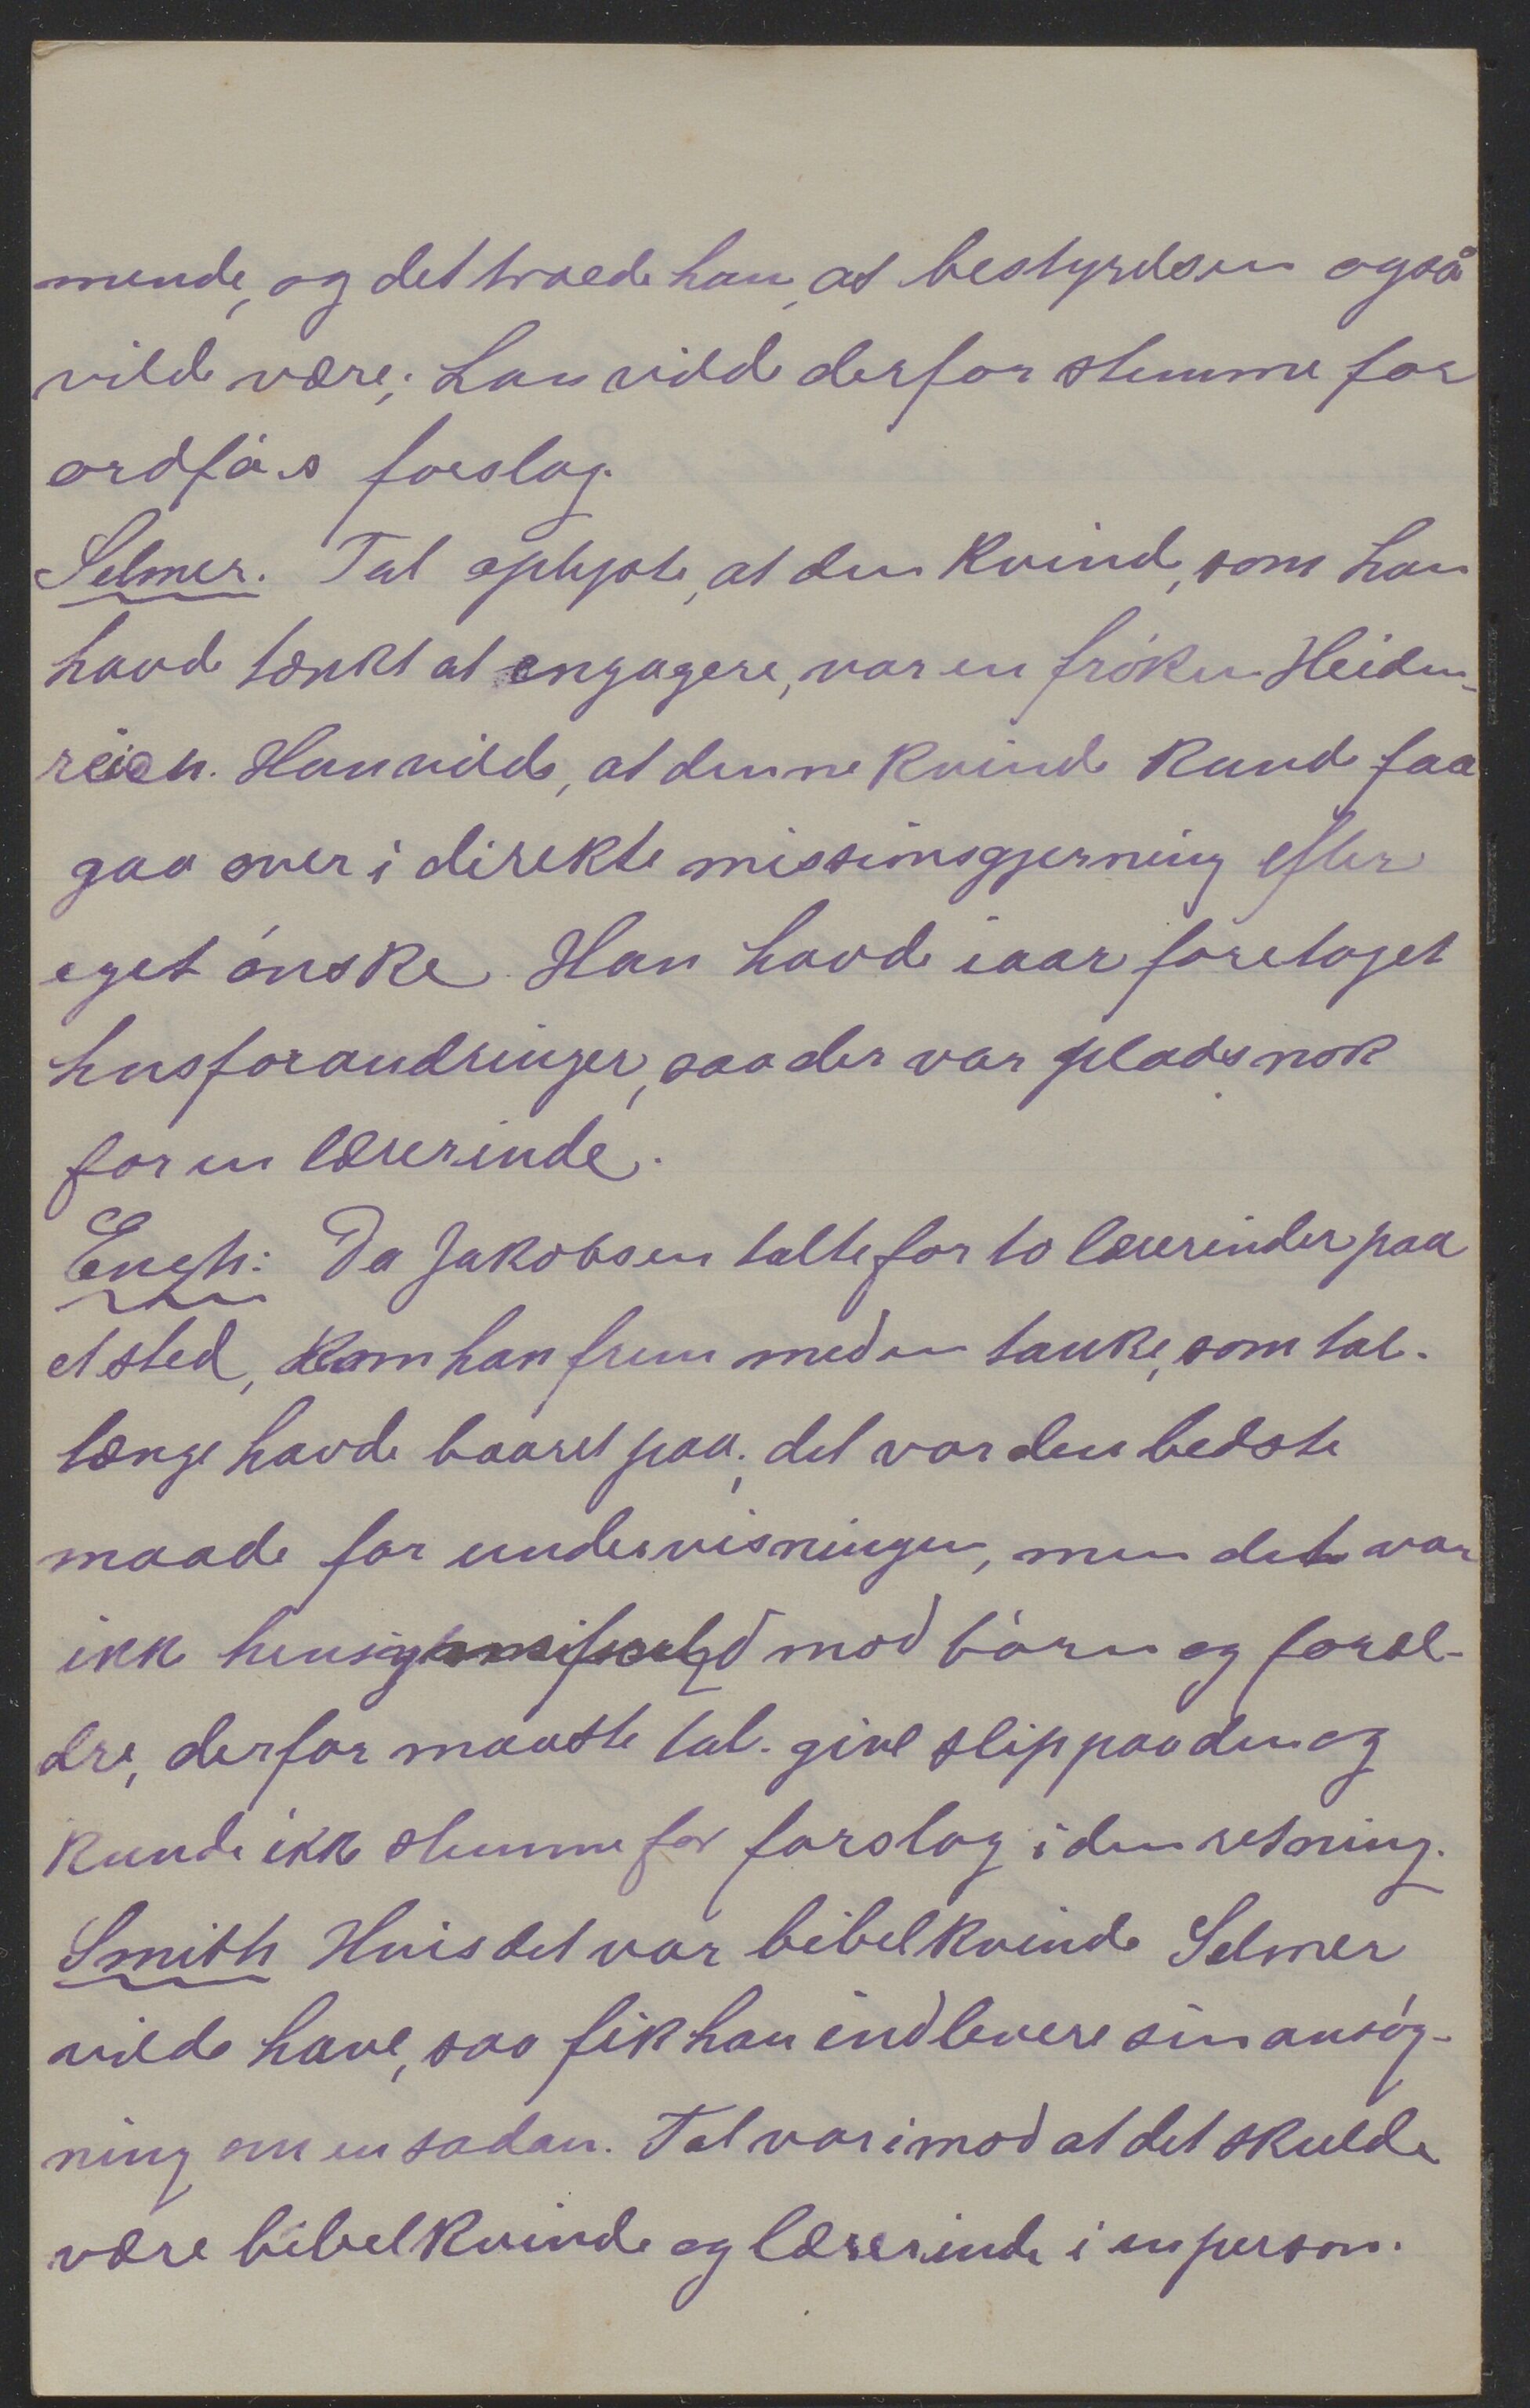 mende, og det troede han, at bestyrelsen også
vilde være; han vilde derfor stemme for
ordfö.s forslag.
Selmer. Tal oplyste, at den kvinde, som han
havde tænkt at engagere, var en fröken Heiden-
reich. Han vilde, at denne kvinde kunde faa
gaa over i direkte missionsgjerning efter
eget önske. Han havde iaar foretaget
husforandringer, saa der var plads nok
for en lærerinde.
Engh: Da Jakobsen talte for to lærerinder paa
et sted, kom han frem med en tanke, som tal.
længe havde baaret paa; det var den bedste
maade for undervisningen, men det var
ikke mod börn og foræl-
dre, derfor maatte tal. give slip paa den og
kunde ikke stemme for forslag i den retning.
Smith Hvis det var bibelkvinde Selmer
vilde have, saa fik han indlevere sin ansög-
ning om en sadan. Tal var imod at det skulde
være bibelkvinde og lærerinde i en person.